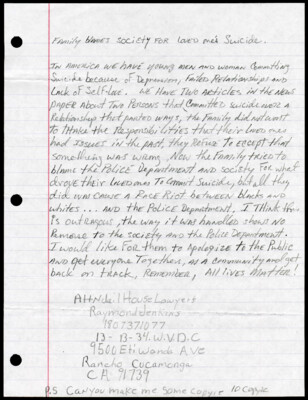 Family blames society for loved one's Suicide.
IN AMERICA WE HAVE YOUNG MEN AND WOMAN Committing
Suicide because of Depression, Failed Relationships and
Lack of Self-love. WE HAVE TWO ARTICLES IN THE NEWS
paper About Two Persons that Committed suicide over a
Relationship that parted ways, the Family did not want
to Make the Responsibilities that their loved one
had ISSUES IN the past, they Refuse to Except that
something was wrong. Now the Family tried to
blame the Police Department and Society for what
drove their loved ones to Commit Suicide, but all they
did was CAUSE A RACE Riot between blacks and
whites... AND the Police Department, I think this
is outragous, the way it was handled shows No
Remorse to the society and the Police Department.
I would like For them to Apologize to the Public
and get everyone Together, as a community and get
back on track, Remember, All lives Matter!
Raymond Jenkins
1807371077
13-B-34 W.V.D.C
9500 Etiwanda AVE
Rancho Cucamonga
CA 91739
P.S Can you make me some Copys 10 Copys